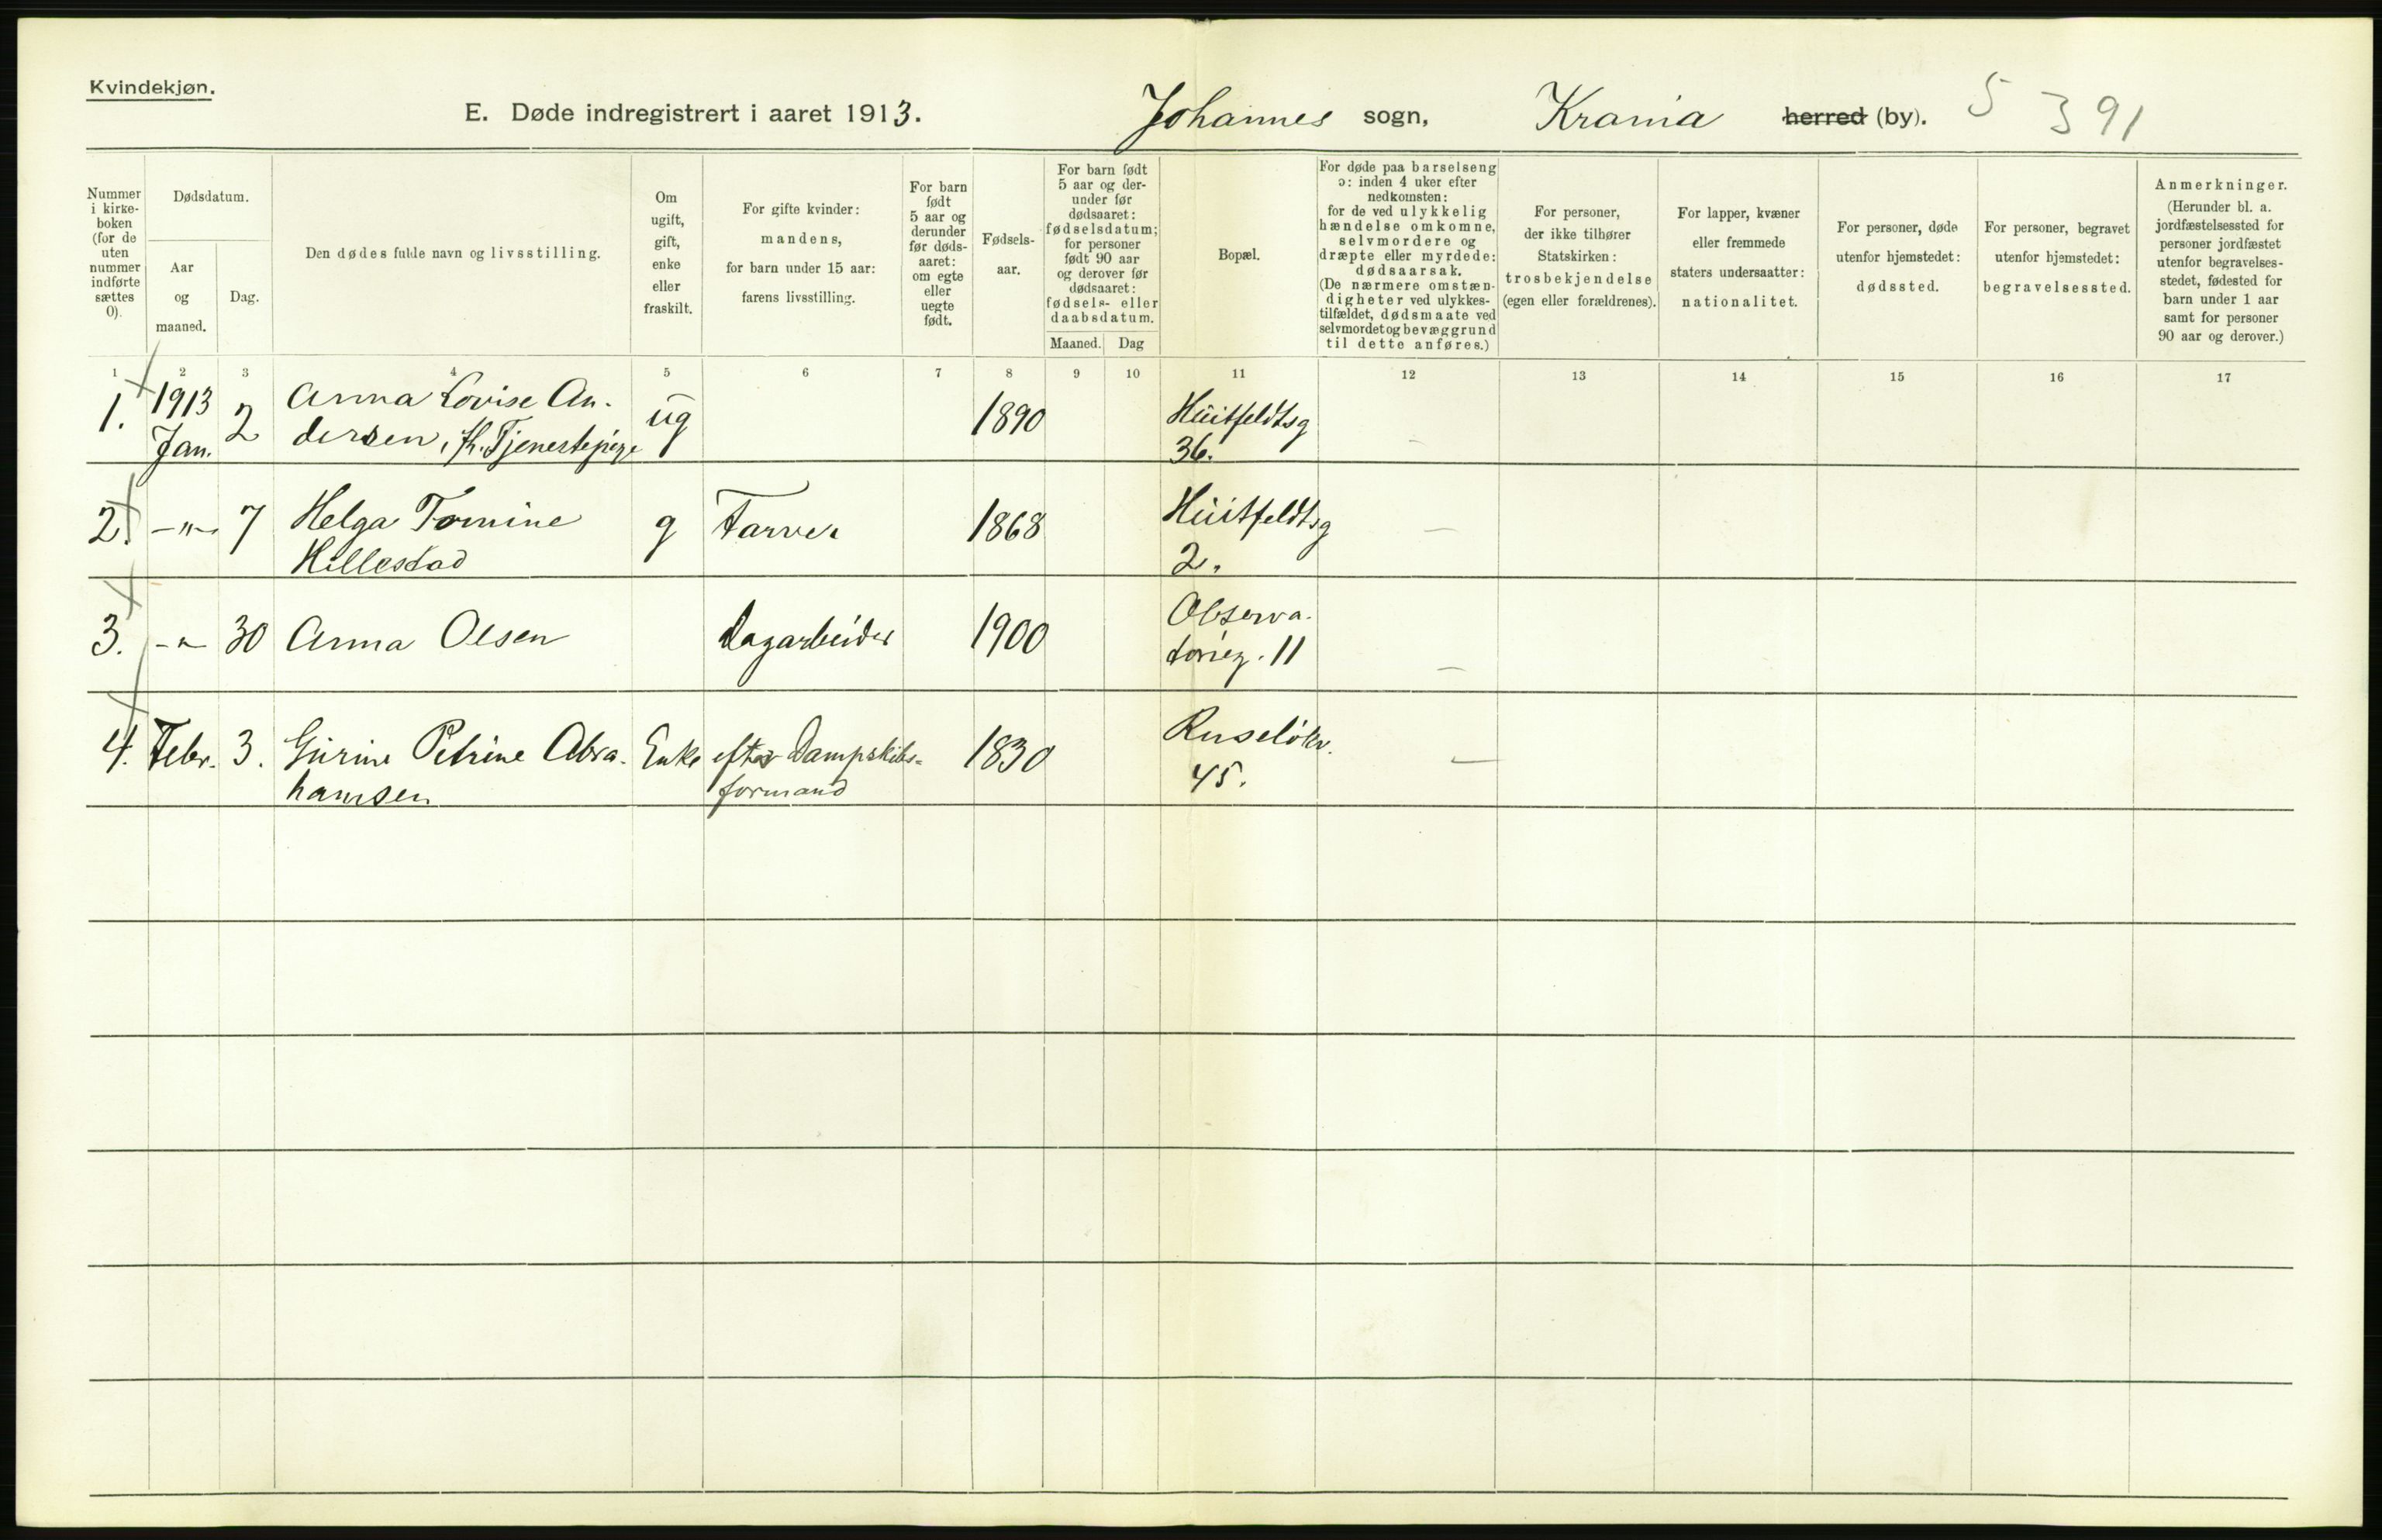 Kvindekjøn.
E. Døde indregistrert i aaret 1913. Johannes sogn, Krania herred (by). 5 391
Nummer i kirke-boken (for de uten nummer indførte sættes 0).
Dødsdatum.
Aar og maaned.
Dag.
Den dødes fulde navn og livsstilling.
Om ugift, gift, enke eller fraskilt.
For gifte kvinder: mandens, for barn under 15 aar: farens livsstilling.
For barn født 5 aar og derunder før døds-aaret: om egte eller uegte født.
Fødsels-aar.
For barn født 5 aar og der-under før dødsaaret: fødselsdatum; for personer født 90 aar og derover før dødsaaret: fødsels- eller daabsdatum.
Maaned. Dag
Bopæl.
For døde paa barselseng ɔ: inden 4 uker efter nedkomsten: for de ved ulykkelig hændelse omkomne, selvmordere og dræpte eller myrdede: dødsaarsak. (De nærmere omstæn-digheter ved ulykkes-tilfældet, dødsmaate ved selvmordet og bevæggrund til dette anføres.)
For personer, der ikke tilhører Statskirken: trosbekjendelse (egen eller forældrenes).
For lapper, kvæner eller fremmede staters undersaatter: nationalitet.
For personer, døde utenfor hjemstedet: dødssted.
For personer, begravet utenfor hjemstedet: begravelsessted.
Anmerkninger. (Herunder bl. a. jordfæstelsessted for personer jordfæstet utenfor begravelses-stedet, fødested for barn under 1 aar samt for personer 90 aar og derover.)
1 2 3 4 5 6 7 8 9 10 11 12 13 14 15 16 17
1. 1913 Jan. 2 Anna Lovise An-
dersen, fh. Tjenestepige ug 1890 Huitfeldtsg
36. —
2. —"— 7 Helga Tomine
Hillestad g Farver 1868 Huitfeldtsg
2. —
3. —"— 30 Anna Olsen Dagarbeider 1900 Observa-
torieg. 11 —
4. Febr. 3. Gurine Petrine Abra-
hamsen Enke efter Dampskibs=
formand 1830 Ruseløkv.
45. —